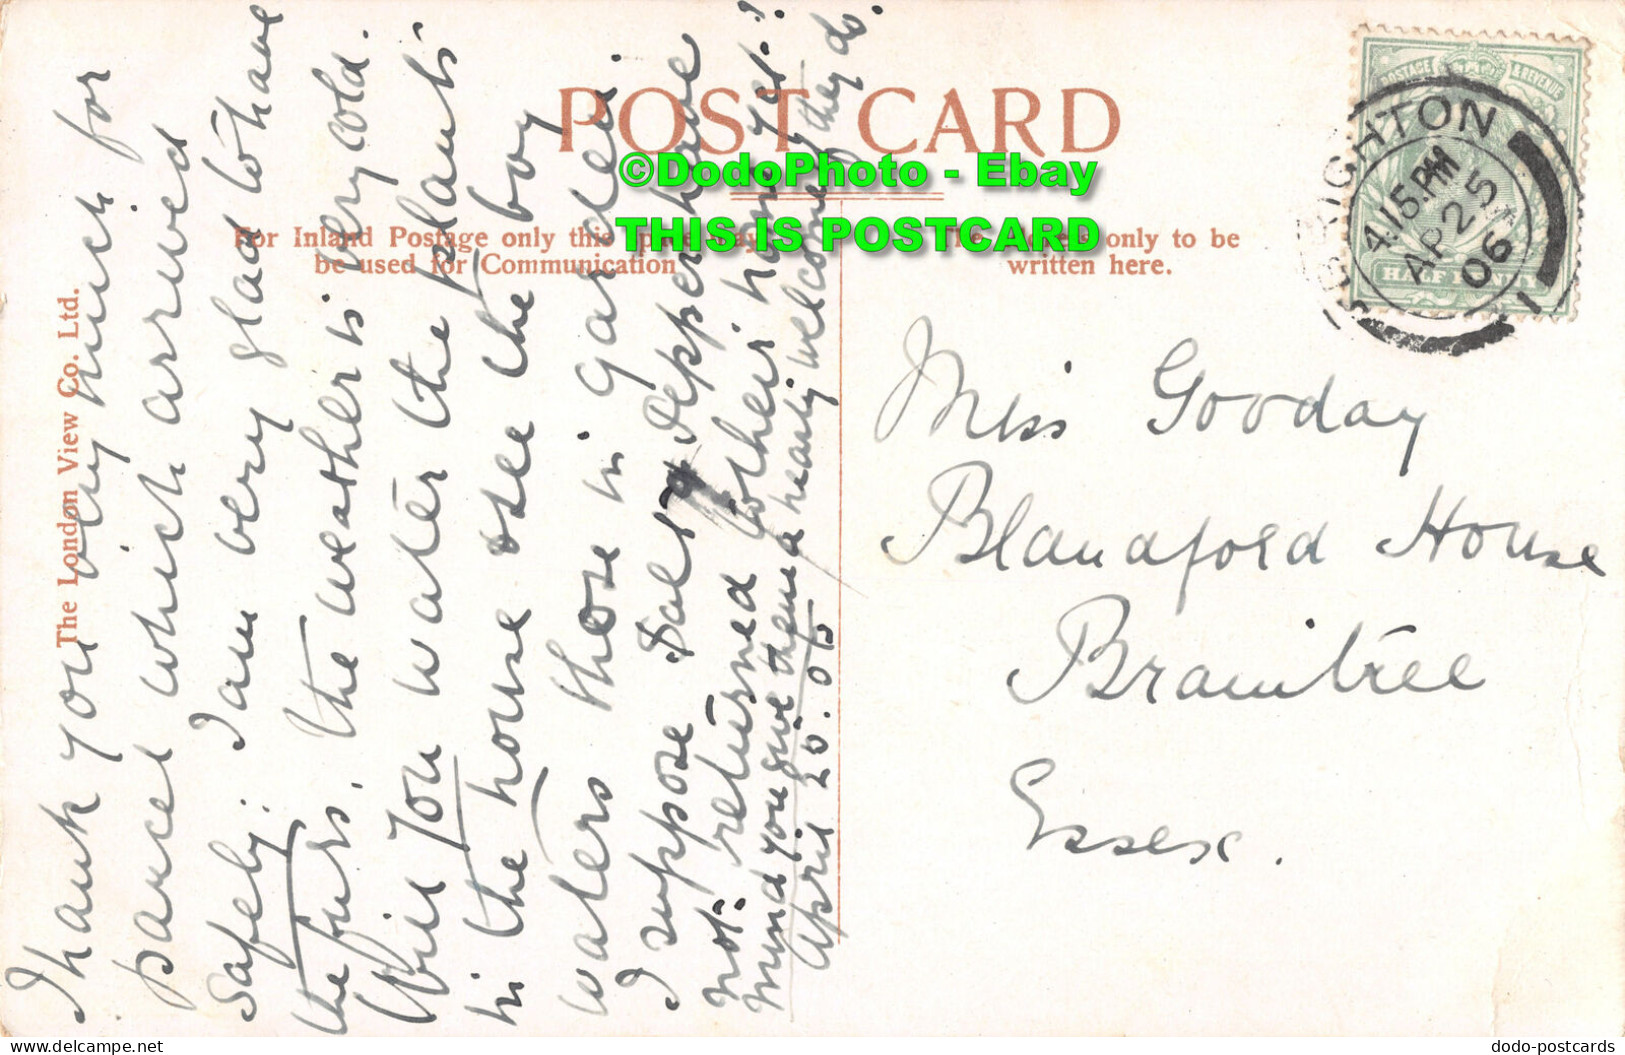 POST CARD
©DodoPhoto - Ebay
THIS IS POSTCARD
For Inland Postage only this
be used for Communication
only to be
written here.
The London View Co. Ltd.
POSTAGE & REVENUE
BRIGHTON
4.15.PM
AP 25
06
1
Thank you very much for
parcel which arrived
safely. I am very glad to have
the furs. The weather is very cold.
Will you water the plants
in the house, the boy
waters those in garden.
I suppose Salt & Pepper have
not returned to their home yet?
Mind you give them a hearty welcome if they do.
April 25.06
Miss Gooday
Blandford House
Braintree
Essex.
dodo-postcards